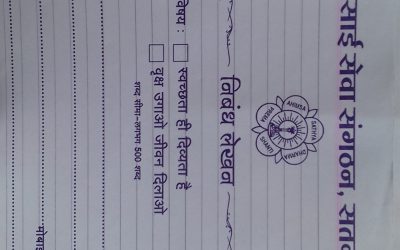 साई सेवा संगठन, सत
SATHYA
DHARMA
SHANTI
PREMA
AHIMSA
निबंध लेखन
विषय :
स्वच्छता ही दिव्यता है
वृक्ष उगाओ जीवन दिलाओ
शब्द सीमा-लगभग 500 शब्द
मोबा